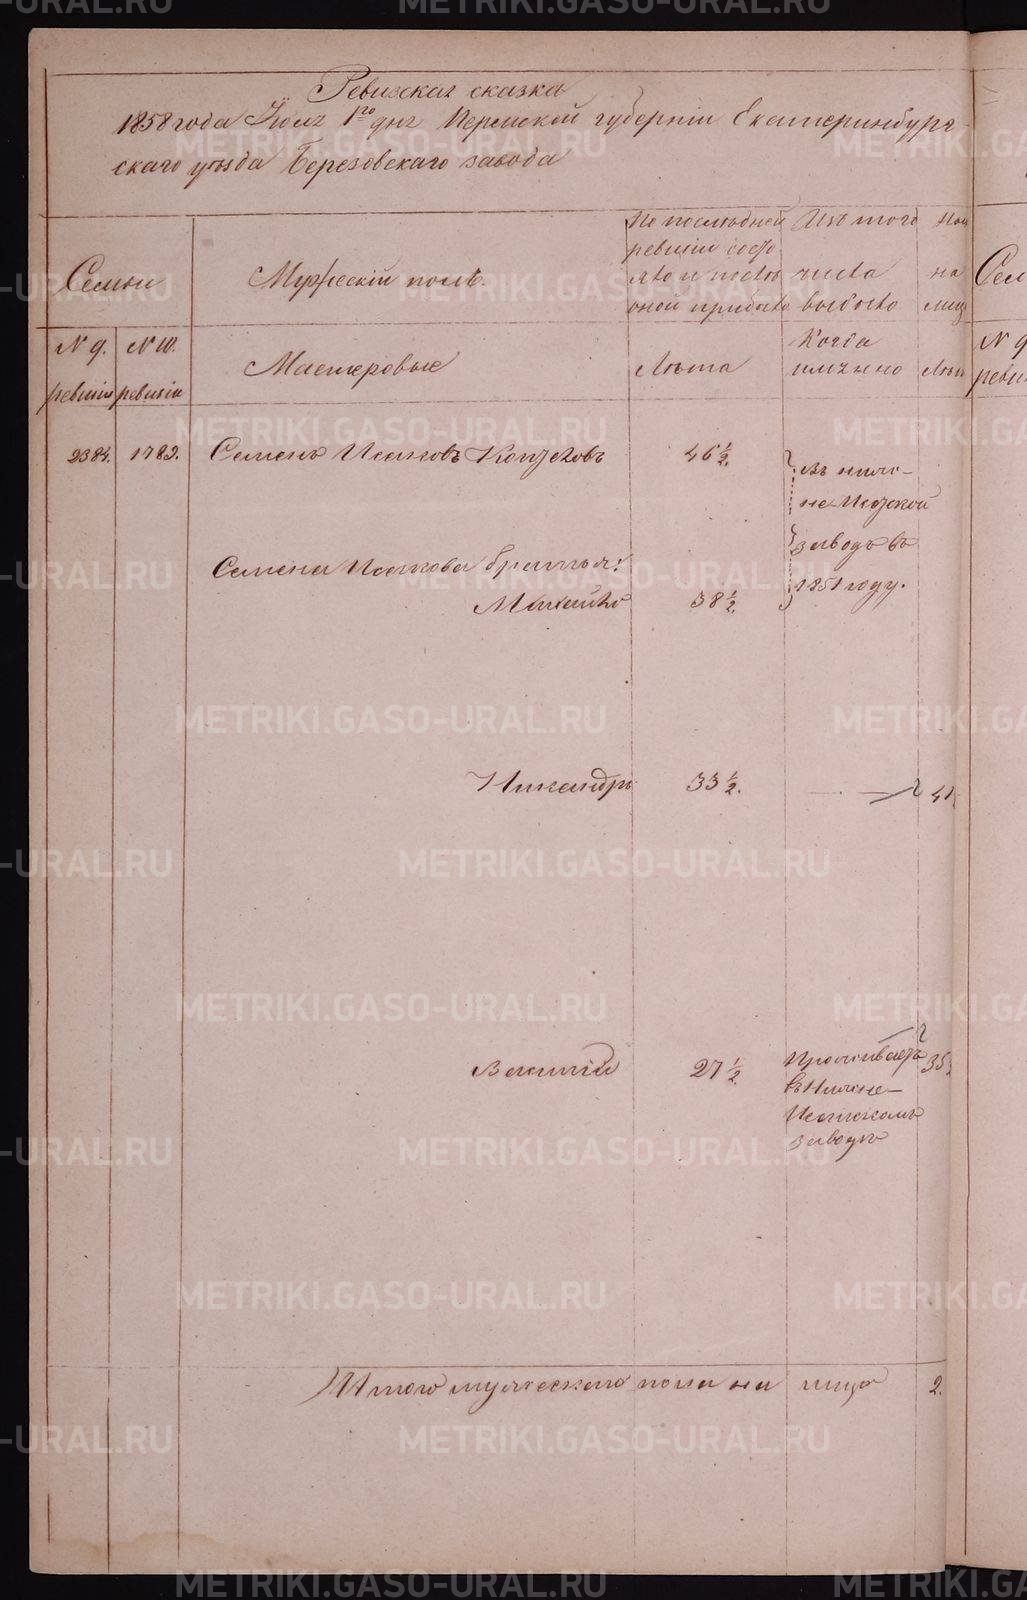 Ревизская сказка
1858 года Іюля 1го дня Пермской губерніи Екатеринбург-
скаго уѣзда Березовскаго завода
Семьи
Мужескій полъ.
По последней
ревизіи состо
яло и после
оной прибыло
Изъ того
числа
выбыло
на
лиц
N 9.
ревизіи
N 10.
ревизіи
Мастеровые
Лѣта
Когда
имянно
Лѣт
Сем
N 9
реви
2384.
1782.
Семенъ Исаковъ
46 1/2.
въ нижне-
Исетской
заводъ въ
1851 году.
Семена Исакова братья:
Михайло
38 1/2.
Никандръ
33 1/2.
41
Василій
27 1/2.
Проживаетъ
въ Нижне-
Исетскомъ
заводѣ
35
Итого мужескаго пола на лицо
2.
METRIKI.GASO-URAL.RU